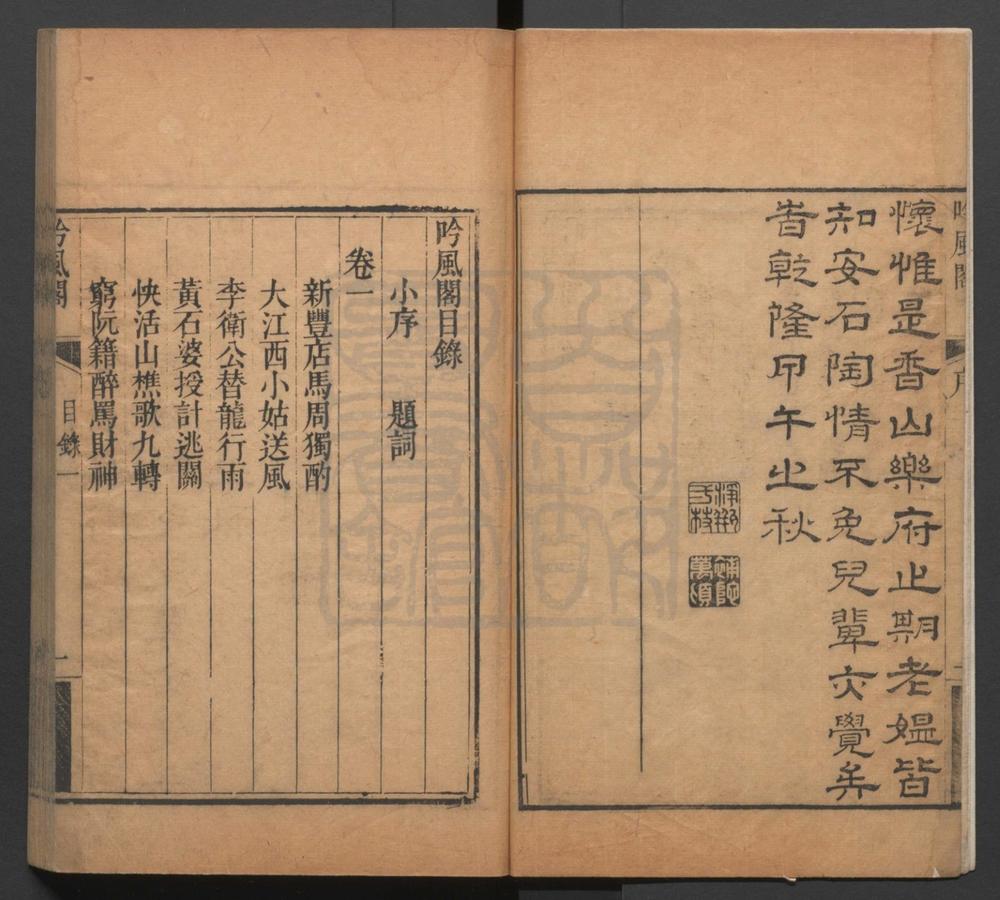 吟風閣
序
懷惟是香山樂府止期老媪皆
知安石陶情不免兒輩亦覺矣
旹乾隆甲午之秋
吟風閣目錄
小序　題詞
卷一
新豐店馬周獨酌
大江西小姑送風
李衛公替龍行雨
黃石婆授計逃關
快活山樵歌九轉
窮阮籍醉罵財神
吟風閣
目錄一
一